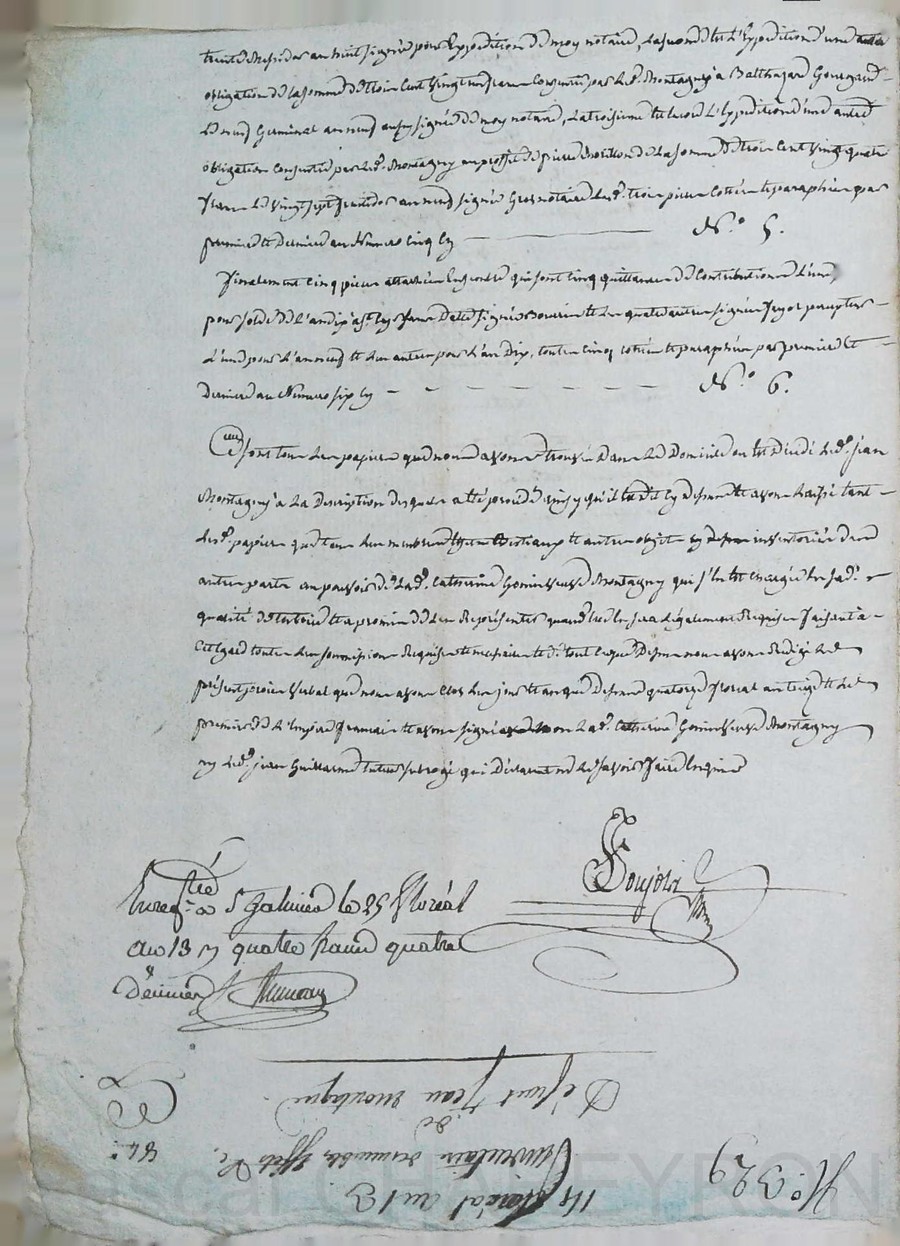 trente messidor an huit signée pour Expedition de moy notaire, la seconde est l'Expedition d'une autre
obligation de la somme de trois Cent vingt un francs Consentie par led. Montagny à Balthazard
Le neuf Germinal an neuf aussy signée de moy notaire, la troisieme est encore l'Expedition d'une autre
obligation Consentie par led. Montagny au proffit de pierre de la somme de trois Cent vingt quatre
francs Le vingt sept fructidor an neuf signée Gros notaire Lesd. trois pieces Cottées et paraphées par
premiere et Derniere au Numero Cinq Cy N.° 5.
Finalement Cinq pieces attachées Ensemble qui sont Cinq quittances de Contributions L'une
pour solde de L'an dix sans Date signée et Les quatre autres signées Fayot percepteur
L'une pour L'an neuf et Les autres pour L'an Dix, toutes Cinq Cottées et paraphées par premiere et
Derniere au Numero six Cy N.° 6.
Ce sont tous Les papiers que nous avons trouvés Dans Le Domicile ou est Décédé Led. jean
Montagny à La Description desquels a été procédé ainsy qu'il est dit Cy Dessus et avons Laissé tant
Lesd. papiers que tous Les meubles Bestiaux et autres objets Cy inventoriés Dans
autre parts au pouvoir de Lad. Catherine Gonin veuve Montagny qui s'en est Chargée En sad.
qualité de tutrice et a promis de Les Représenter quand Elle En sera Légalement Requise faisant à
Cet Egard toutes Les soumissions Requises et necessaires et de tout Ce que Dessus nous avons Rédigé Le
présent procès verbal que nous avons Clos Les jour et an que Dessus quatorze floreal an treize et Le
premier de L'empire français et avons signé non Lad. Catherine Gonin veuve Montagny
ny Led. jean Guillaume tuteur subrogé qui Déclarent ne Le savoir faire Enquis
Goujon
Enreg.tré a S.t Galmier le 25 floréal
an 13 quatre francs quatre
décimes
N.° 329
14 floréal an 13.
Inventaire des meubles, Effets &c.
de
Défunt Jean Montagny.